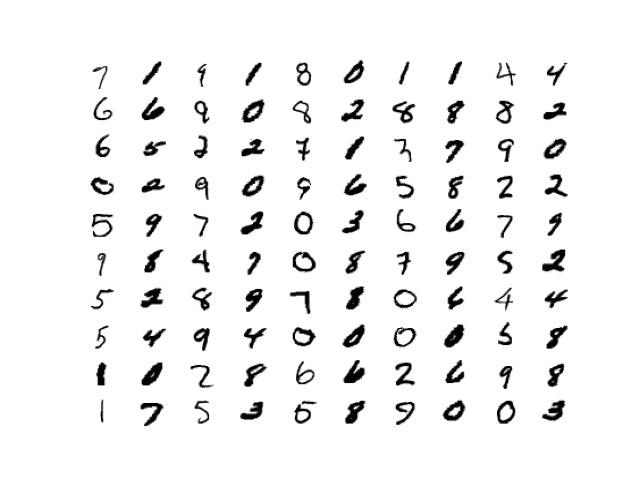 7 1 9 1 8 0 1 1 4 4
6 6 9 0 8 2 8 8 8 2
6 5 2 2 7 1 3 7 9 0
0 2 9 0 9 6 5 8 2 2
5 9 7 2 0 3 6 6 7 9
9 8 4 7 0 8 7 9 5 2
5 2 8 9 7 8 0 6 4 4
5 4 9 4 0 0 0 0 5 8
1 0 2 8 6 6 2 6 9 8
1 7 5 3 5 8 9 0 0 3